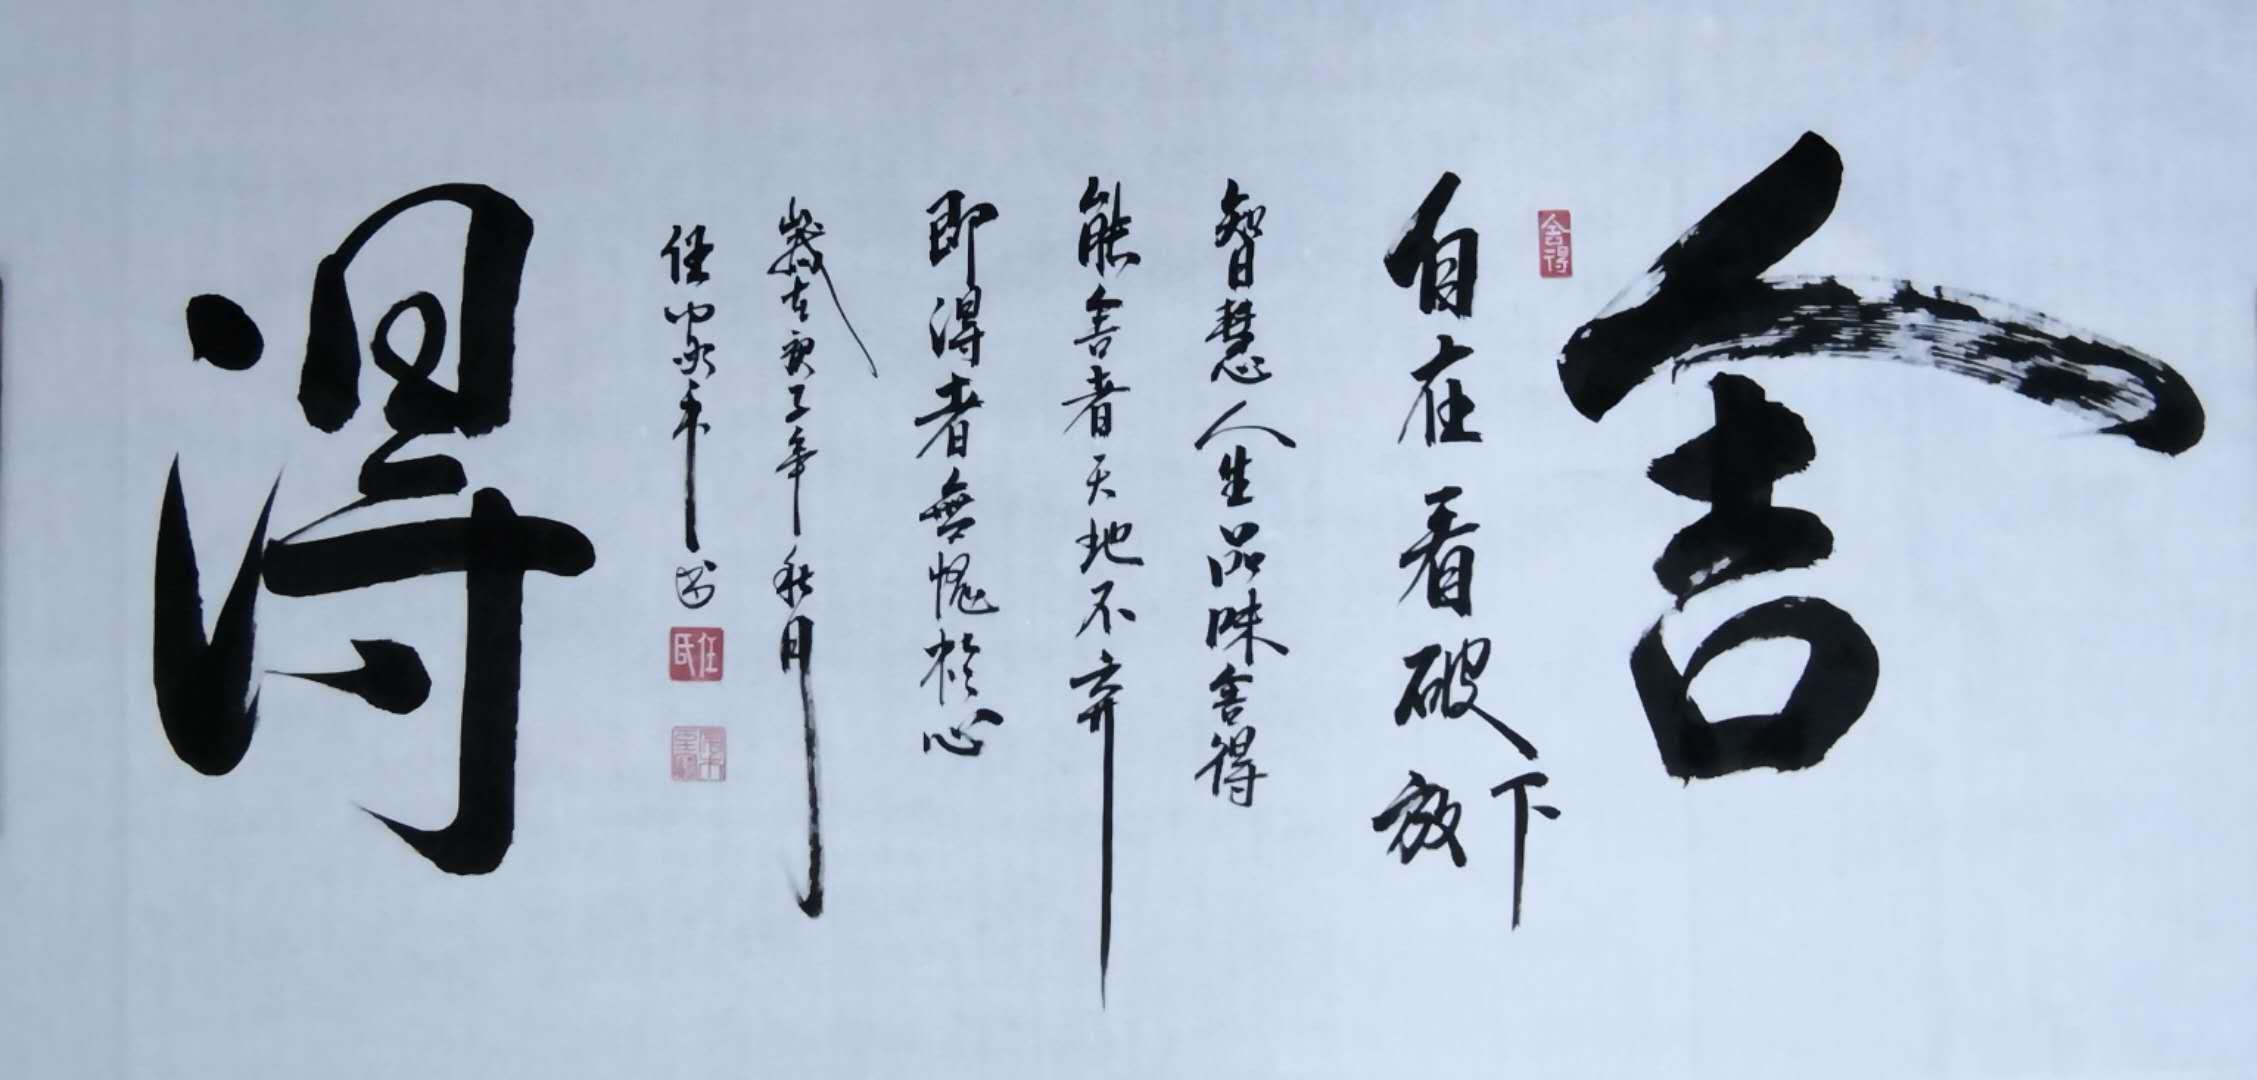 舍
舍得
自在看破放下
智慧人生品味舍得
能舍者天地不弃
即得者無愧於心
歲在庚子年秋月
任家平书
任氏
得